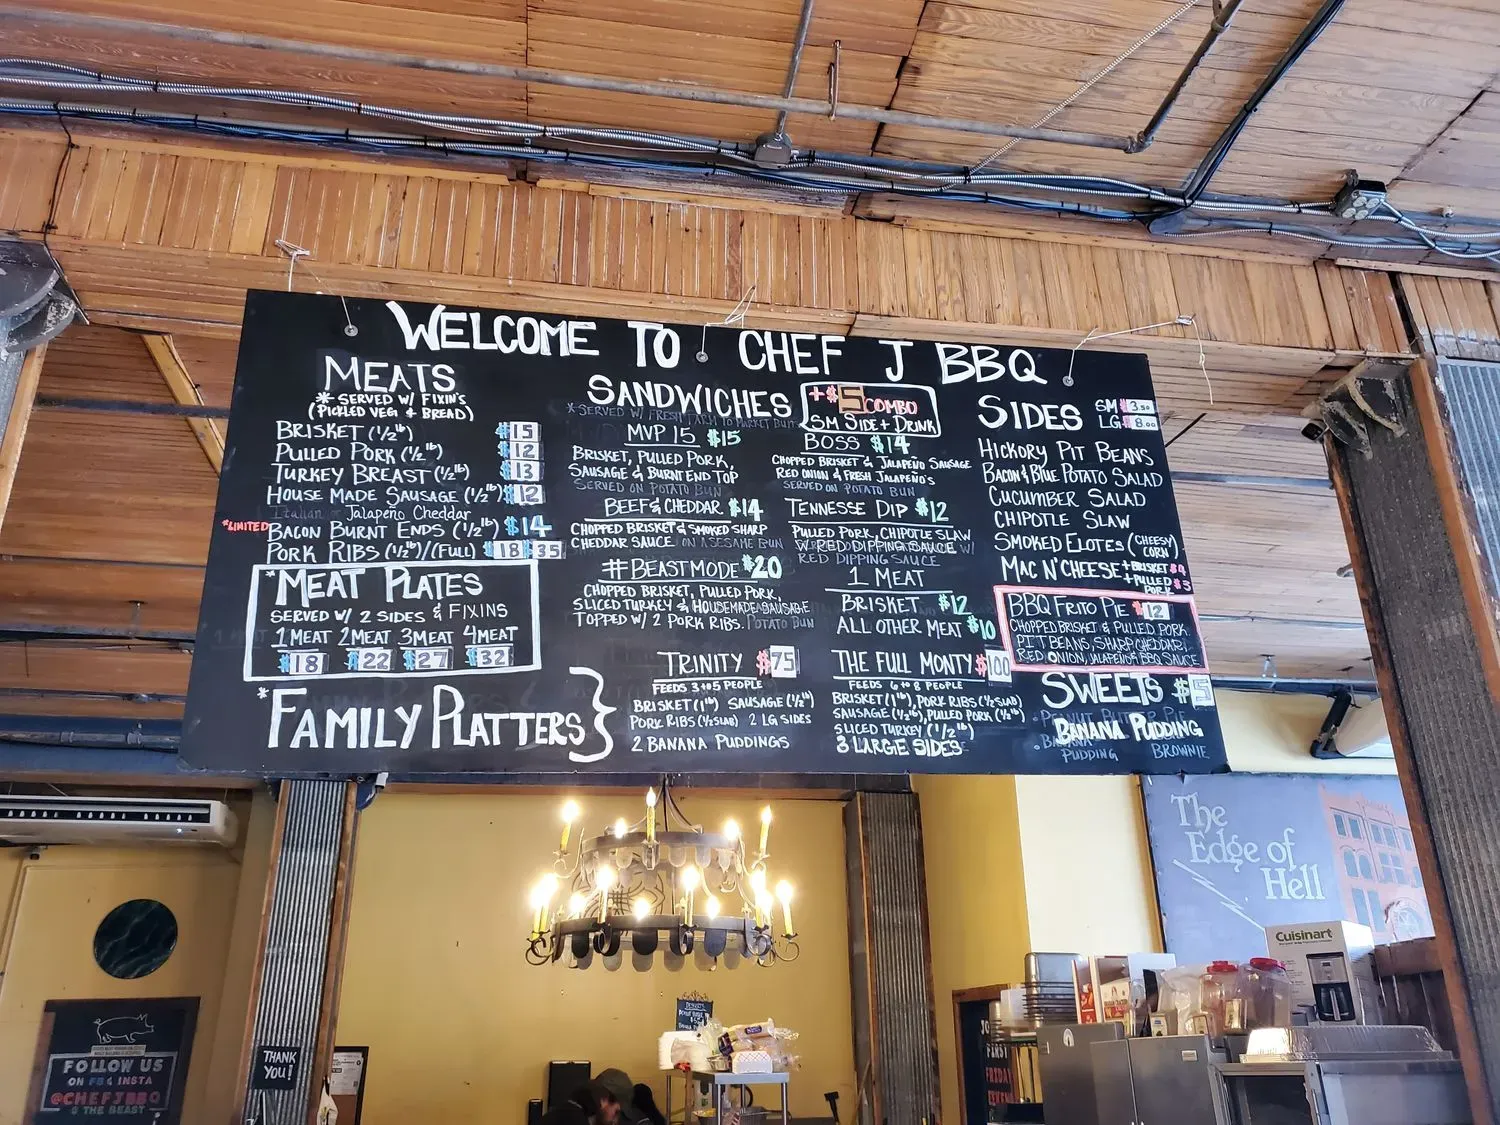 WELCOME TO CHEF J BBQ
MEATS
* SERVED W/ FIXIN'S
(PICKLED VEG & BREAD)
BRISKET (1/2 lb) $15
PULLED PORK (1/2 lb) $12
TURKEY BREAST (1/2 lb) $13
HOUSE MADE SAUSAGE (1/2 lb) $12
Italian or Jalapeño Cheddar
*LIMITED BACON BURNT ENDS (1/2 lb) $14
PORK RIBS (1/2 lb)/(FULL) $18 $35
*MEAT PLATES
SERVED W/ 2 SIDES & FIXINS
1 MEAT 2 MEAT 3 MEAT 4 MEAT
$18 $22 $27 $32
*FAMILY PLATTERS }
SANDWICHES
* SERVED W/ FRESH FARM TO MARKET BUN
+$5 COMBO
SM SIDE + DRINK
MVP 15 $15
BRISKET, PULLED PORK,
SAUSAGE & BURNT END TOP
SERVED ON POTATO BUN
BEEF & CHEDDAR $14
CHOPPED BRISKET & SMOKED SHARP
CHEDDAR SAUCE ON A SESAME BUN
#BEASTMODE $20
CHOPPED BRISKET, PULLED PORK,
SLICED TURKEY & HOUSEMADE SAUSAGE
TOPPED W/ 2 PORK RIBS. POTATO BUN
BOSS $14
CHOPPED BRISKET & JALAPEÑO SAUSAGE
RED ONION & FRESH JALAPEÑO'S
SERVED ON POTATO BUN
TENNESSE DIP $12
PULLED PORK, CHIPOTLE SLAW
W/ RED DIPPING SAUCE W/
RED DIPPING SAUCE
1 MEAT
BRISKET $12
ALL OTHER MEAT $10
TRINITY $75
FEEDS 3 to 5 PEOPLE
BRISKET (1 lb) SAUSAGE (1/2 lb)
PORK RIBS (1/2 SLAB) 2 LG SIDES
2 BANANA PUDDINGS
THE FULL MONTY $100
FEEDS 6 to 8 PEOPLE
BRISKET (1 lb), PORK RIBS (1/2 SLAB)
SAUSAGE (1/2 lb), PULLED PORK (1/2 lb)
SLICED TURKEY (1/2 lb)
3 LARGE SIDES
SIDES SM $3.50
LG $8.00
HICKORY PIT BEANS
BACON & BLUE POTATO SALAD
CUCUMBER SALAD
CHIPOTLE SLAW
SMOKED ELOTES (CHEESY CORN)
MAC N' CHEESE + BRISKET $4
+ PULLED PORK $3
BBQ FRITO PIE $12
CHOPPED BRISKET & PULLED PORK
PIT BEANS, SHARP CHEDDAR,
RED ONION, JALAPEÑO & BBQ SAUCE
SWEETS $5
PEANUT BUTTER PIE
BANANA PUDDING
PUDDING BROWNIE
The
Edge of
Hell
Cuisinart
FOLLOW US
ON FB & INSTA
@CHEFJBBQ
& THE BEAST
THANK
YOU!
FIRST
FRIDAY